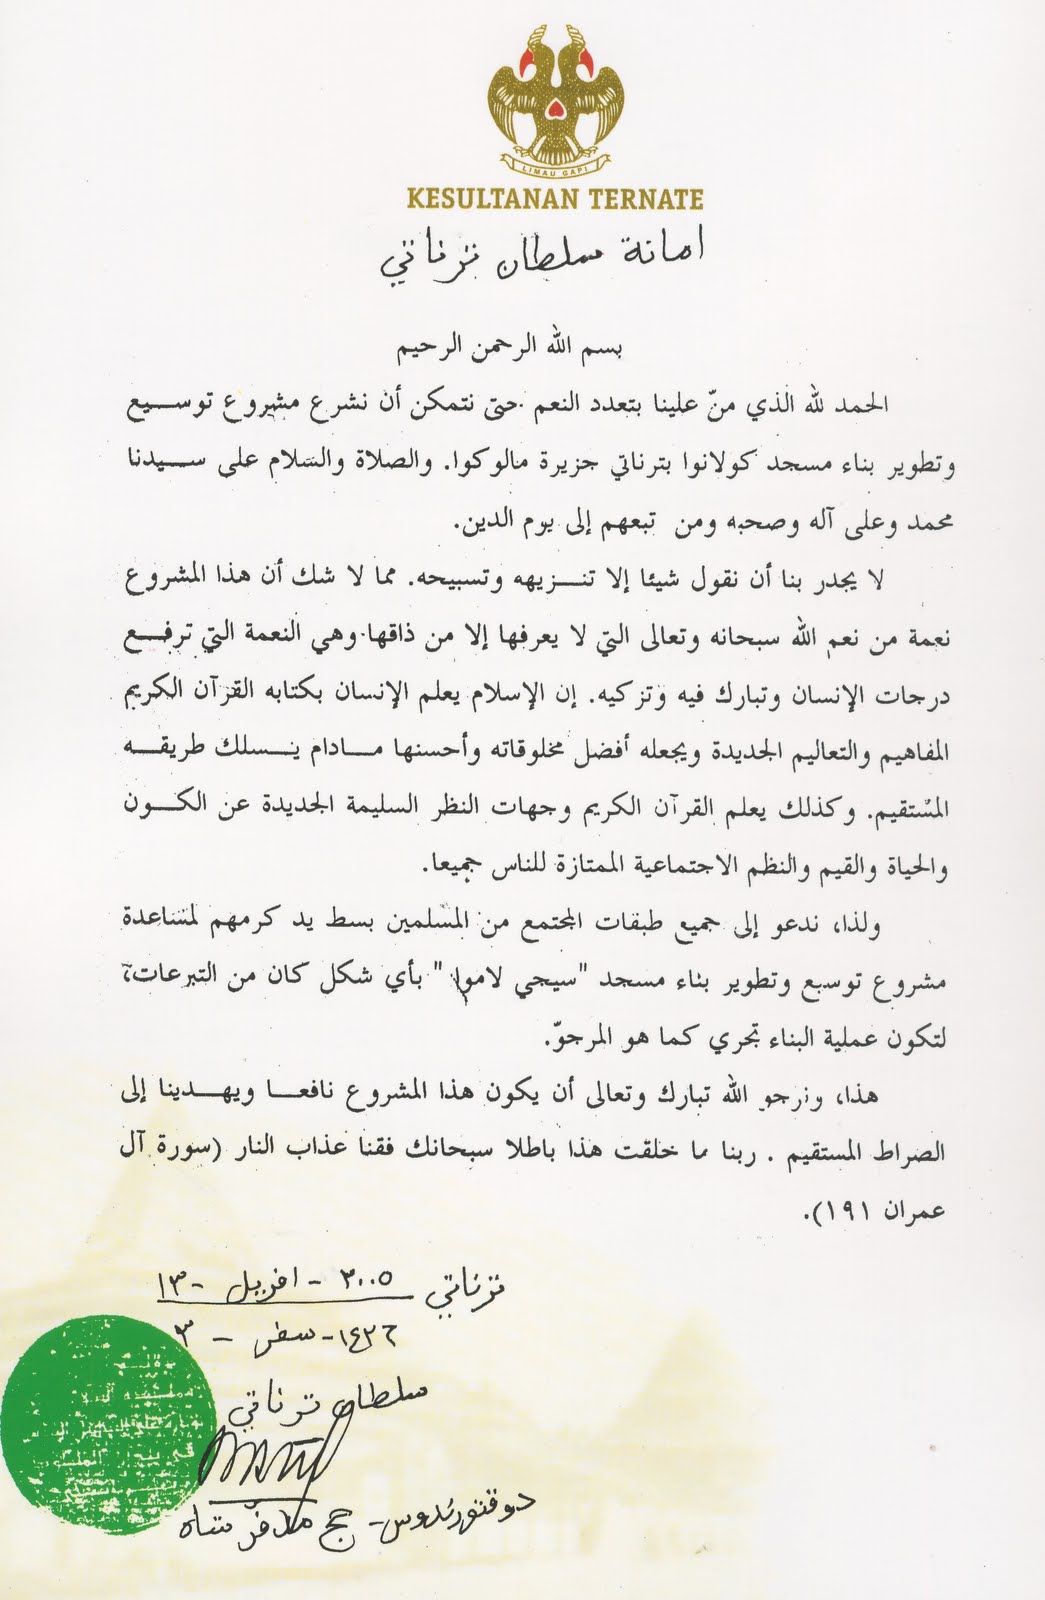 LIMAU GAPI
KESULTANAN TERNATE
امانة سلطان ترناتي
بسم الله الرحمن الرحيم
الحمد لله الذي منّ علينا بتعدد النعم حتى نتمكن أن نشرع مشروع توسيع
وتطوير بناء مسجد كولانوا بترناتي جزيرة مالوكوا. والصلاة والسلام على سيدنا
محمد وعلى آله وصحبه ومن تبعهم إلى يوم الدين.
لا يجدر بنا أن نقول شيئا إلا تنزيهه وتسبيحه. مما لا شك أن هذا المشروع
نعمة من نعم الله سبحانه وتعالى التي لا يعرفها إلا من ذاقها وهي النعمة التي ترفع
درجات الإنسان وتبارك فيه وتزكيه. إن الإسلام يعلم الإنسان بكتابه القرآن الكريم
المفاهيم والتعاليم الجديدة ويجعله أفضل مخلوقاته وأحسنها مادام يسلك طريقه
المستقيم. وكذلك يعلم القرآن الكريم وجهات النظر السليمة الجديدة عن الكون
والحياة والقيم والنظم الاجتماعية الممتازة للناس جميعا.
ولذا، ندعو إلى جميع طبقات المجتمع من المسلمين بسط يد كرمهم لمساعدة
مشروع توسيع وتطوير بناء مسجد "سيجي لاموا" بأي شكل كان من التبرعات،
لتكون عملية البناء تجري كما هو المرجوّ.
هذا، ونرجو الله تبارك وتعالى أن يكون هذا المشروع نافعا ويهدينا إلى
الصراط المستقيم . ربنا ما خلقت هذا باطلا سبحانك فقنا عذاب النار (سورة آل
عمران ١٩١).
ترناتي ٢٠٠٥ - افريل - ١٣
١٤٢٦ - سفر - ٣
سلطان ترناتي
حج مظفر شاه